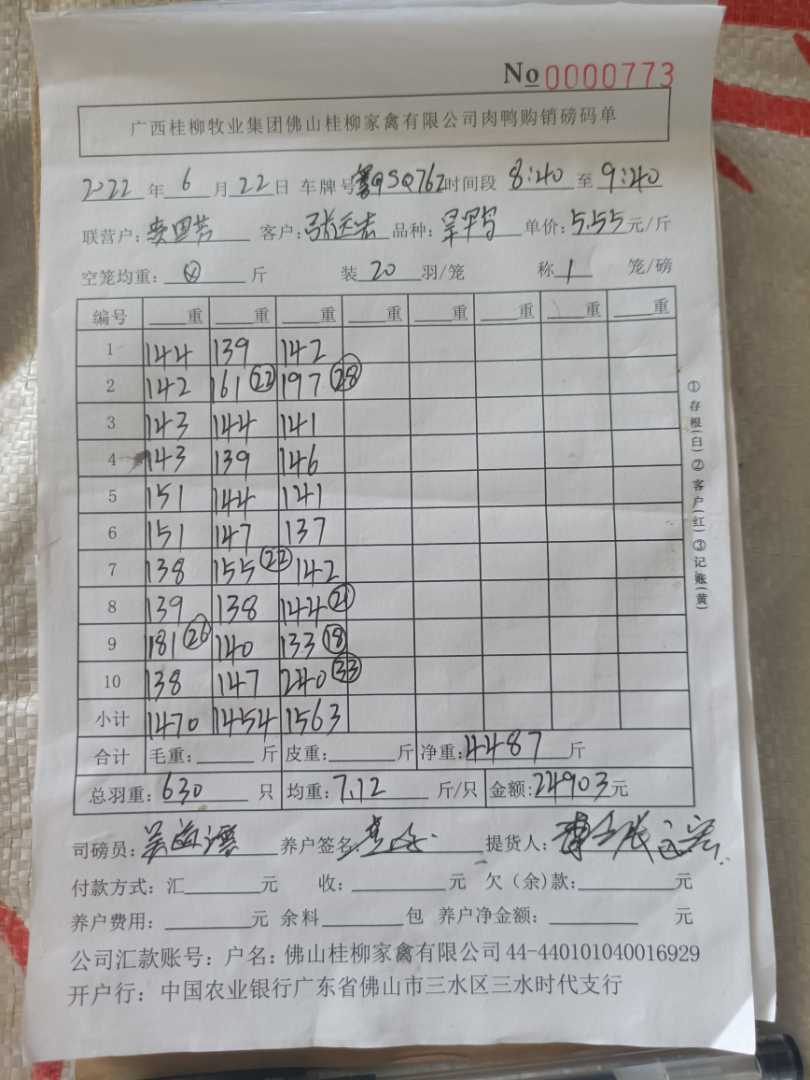 No 0000773
广西桂柳牧业集团佛山桂柳家禽有限公司肉鸭购销磅码单
2022 年 6 月 22 日 车牌号 粤QSQ762 时间段 8:40 至 9:40
联营户: 客户: 品种: 单价: 5.55 元/斤
空笼均重: 斤 装 20 羽/笼 称 1 笼/磅
编号 重 重 重 重 重 重 重 重
1 144 139 142
2 142 161 (22) 197 (28)
3 143 144 141
4 143 139 146
5 151 144 141
6 151 147 137
7 138 155 (22) 142
8 139 138 144 (21)
9 181 (26) 140 133 (18)
10 138 147 240 (33)
小计 1470 1454 1563
合计 毛重: 斤 皮重: 斤 净重: 4487 斤
总羽重: 630 只 均重: 7.12 斤/只 金额: 24903 元
司磅员: 养户签名 提货人:
付款方式: 汇 元 收: 元 欠(余)款: 元
养户费用: 元 余料 包 养户净金额: 元
公司汇款账号: 户名: 佛山桂柳家禽有限公司 44-440101040016929
开户行: 中国农业银行广东省佛山市三水区三水时代支行
①存根(白)②客户(红)③记账(黄)